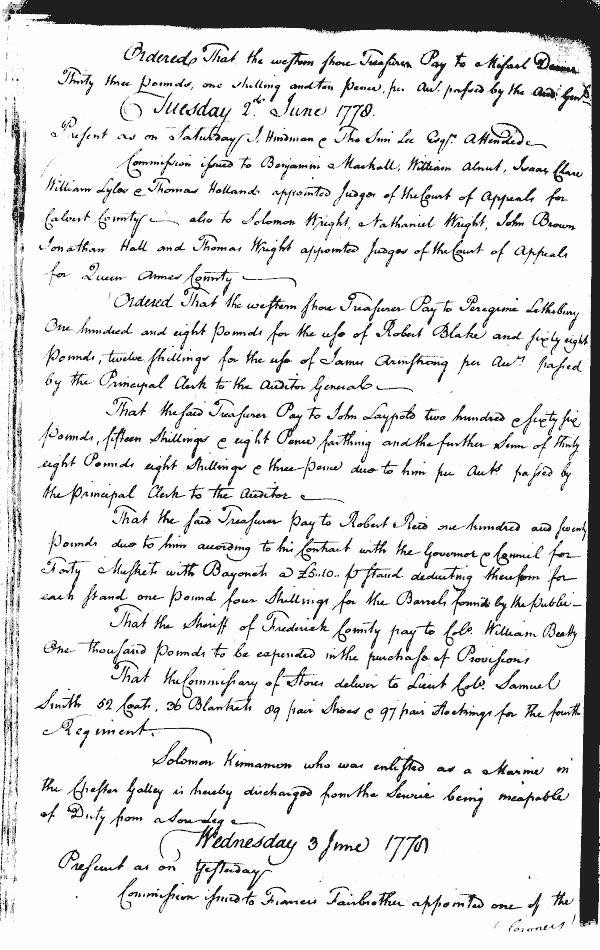 Ordered That the western shore Treasurer Pay to Misael
Thirty three pounds, one shilling and ten pence, per Act. passed by the Aud. Genl.
Tuesday 2d. June 1778.
Present as on Saturday J. Hindman & Tho Sim Lee Esqrs. Attended
Commission issued to Benjamin Mackall, William Alnut, Isaac Clare
William Lyles & Thomas Holland appointed Judges of the Court of Appeals for
Calvert County also to Solomon Wright, Nathaniel Wright, John Brown
Jonathan Hall and Thomas Wright appointed Judges of the Court of Appeals
for Queen Annes County
Ordered That the western shore Treasurer Pay to Peregrine Lethrbury
One hundred and eight pounds for the use of Robert Blake and sixty eight
Pounds, twelve shillings for the use of James Armstrong per Acts. passed
by the Principal Clerk to the Auditor General
That the said Treasurer Pay to John Laypold two hundred & sixty six
pounds, fifteen Shillings & eight Pence farthing and the further Sum of thirty
eight Pounds eight shillings & three pence due to him per Acts. passed by
the Principal Clerk to the Auditor
That the said Treasurer Pay to Robert Reid one hundred and seventy
pounds due to him according to his Contract with the Governor & Council for
Forty Muskets with Bayonets a £5..10.. p stand deducting therefrom for
each stand one Pound four Shillings for the Barrels found by the Public
That the Sheriff of Frederick County pay to Colo. William Beatty
One thousand pounds to be expended in the purchase of Provisions
That the Commissary of Stores deliver to Lieut Colo. Samuel
Smith 52 Coats, 36 Blankets 89 pair Shoes & 97 pair Stockings for the fourth
Regiment.
Solomon Kinnamon who was enlisted as a Marine in
the Chester Galley is hereby discharged from the Service being incapable
of Duty from a sore leg
Wednesday 3 June 1778
Present as on Yesterday
Commission issued to Francis Fairbrother appointed one of the
Coroners